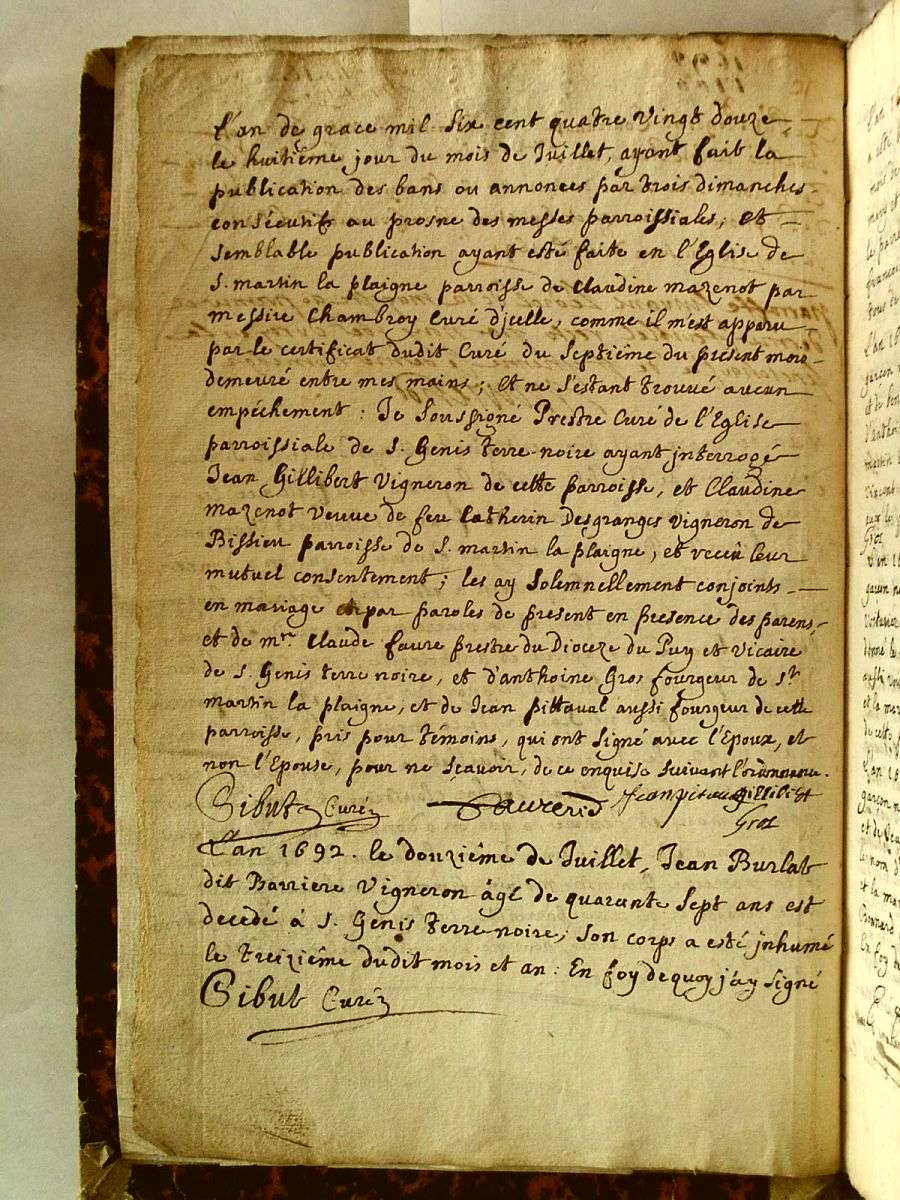 L'an de grace mil six cent quatre vingt douze
le huitiême jour du mois de Juillet, ayant fait la
publication des bans ou annonces par trois dimanches
consécutifs au prosne des messes parroissiales; et
semblable publication ayant esté faite en l'Eglise de
S. martin la plaigne parroisse de Claudine mazenot par
messire Chambroy Curé d'jcelle, comme il m'est apparu
par le certificat dudit Curé du septiéme du present mois
demeuré entre mes mains; Et ne s'estant trouvé aucun
empéchement: Je soussigné Prestre Curé de l'Eglise
parroissiale de S. Genis terre-noire ayant jnterrogé
Jean Gillibert Vigneron de cette parroisse, et Claudine
mazenot veuve de feu Catherin Desgranges vigneron de
Bissieu parroisse de S. martin la plaigne, et receû leur
mutuel consentement; les ay solemnellement conjoints
en mariage et par paroles de present en presence des parens,
et de mre. Claude faure prestre du Dioceze du Puy et Vicaire
de S. Genis terre noire, et d'anthoine Gros fourgeur de St.
martin la plaigne, et de Jean pittaval aussi fourgeur de cette
parroisse, pris pour témoins, qui ont signé avec l'Epoux, et
non l'Epouse, pour ne sçavoir, de ce enquise suivant l'ordonnance.
Sibut Curé Jean pitaval Gillibert
Gros
L'an 1692. le douziême de Juillet, Jean Burlat
dit Barriere Vigneron âgé de quarante sept ans est
decedé â S. Genis terre-noire; son corps a esté jnhumé
le treiziême dudit mois et an: En foy de quoy j'ay signé
Sibut Curé